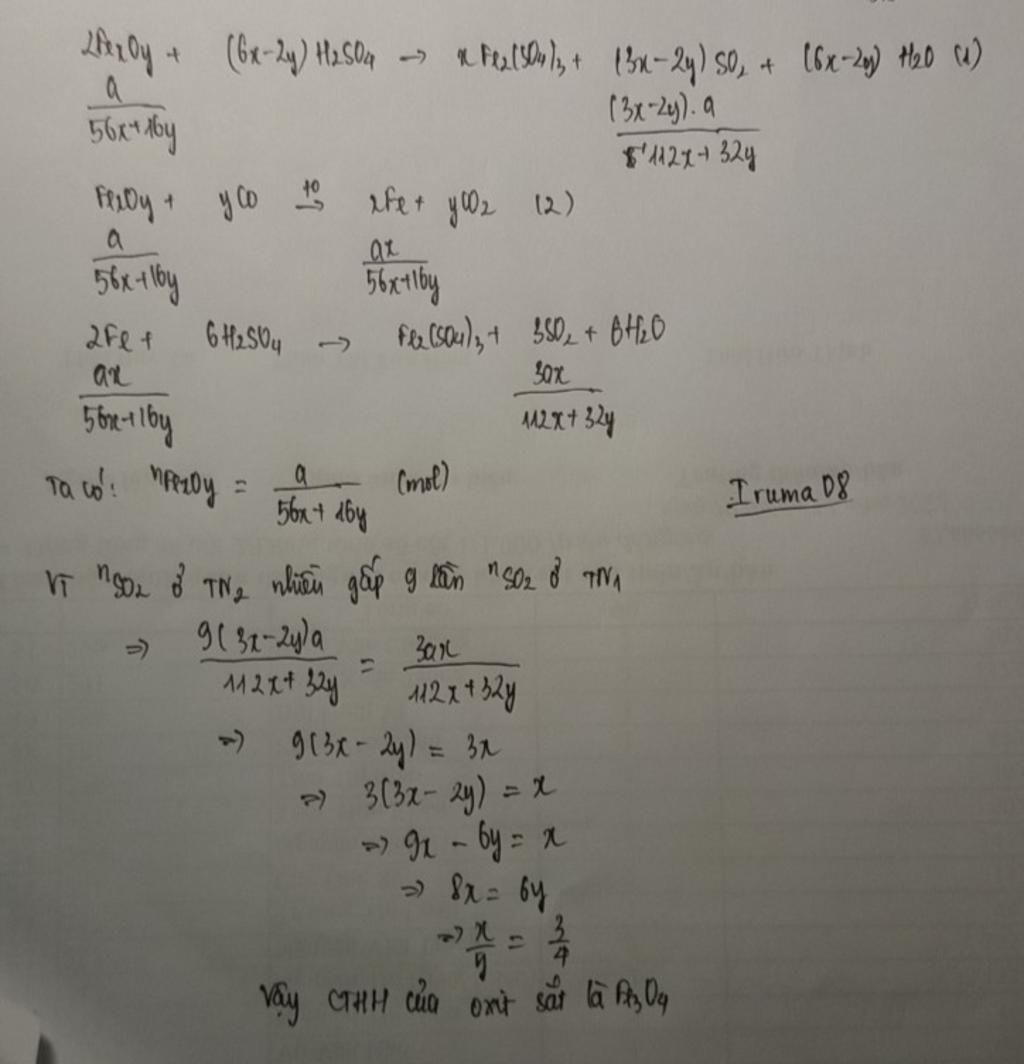 2FexOy + (6x-2y) H2SO4 → x Fe2(SO4)3 + (3x-2y) SO2 + (6x-2y) H2O (1)
a/(56x+16y) (3x-2y).a/(112x+32y)
FexOy + yCO t°→ xFe + yCO2 (2)
a/(56x+16y) ax/(56x+16y)
2Fe + 6H2SO4 → Fe2(SO4)3 + 3SO2 + 6H2O
ax/(56x+16y) 3ax/(112x+32y)
Ta có: nFexOy = a/(56x+16y) (mol) Iruma08
Vì nSO2 ở TN2 nhiều gấp 9 lần nSO2 ở TN1
=> 9(3x-2y)a/(112x+32y) = 3ax/(112x+32y)
=> 9(3x-2y) = 3x
=> 3(3x-2y) = x
=> 9x - 6y = x
=> 8x = 6y
=> x/y = 3/4
Vậy CTHH của oxit sắt là Fe3O4